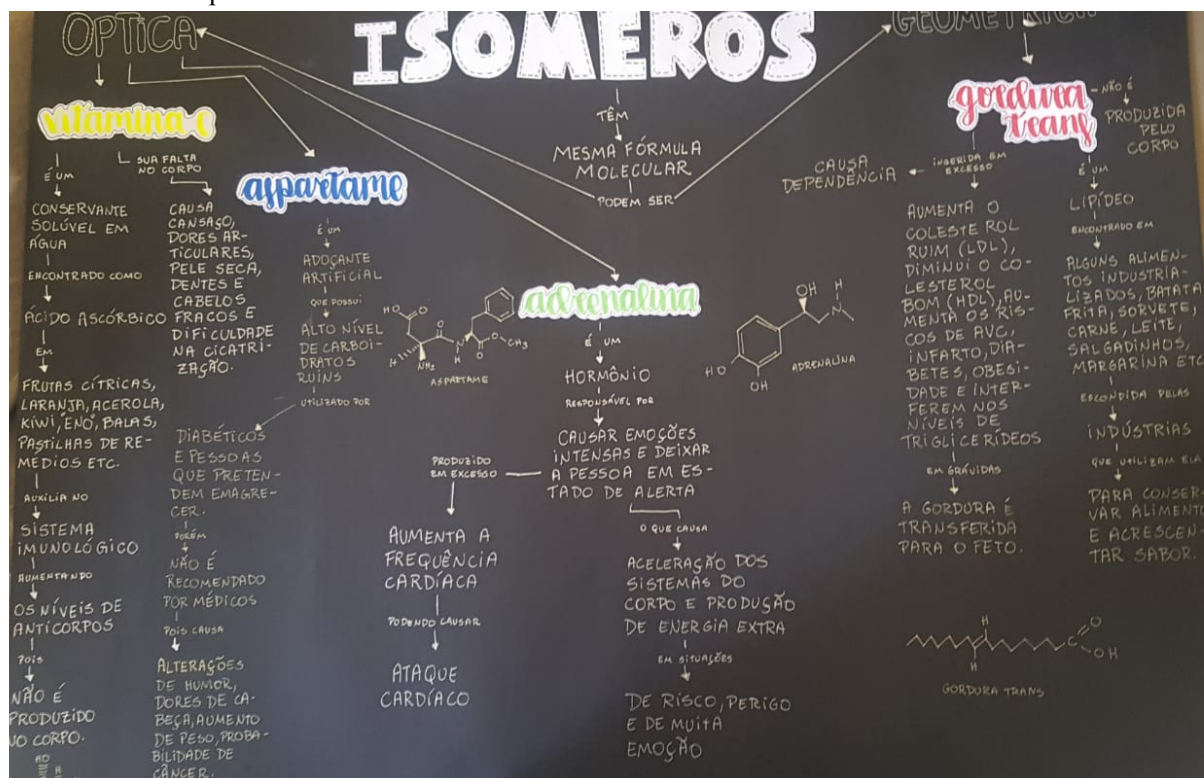 ÓPTICA
ISÔMEROS
GEOMÉTRICA
TÊM
MESMA FÓRMULA
MOLECULAR
PODEM SER
vitamina c
É UM
CONSERVANTE
SOLÚVEL EM
ÁGUA
ENCONTRADO COMO
ÁCIDO ASCÓRBICO
EM
FRUTAS CÍTRICAS,
LARANJA, ACEROLA,
KIWI, "ENO", BALAS,
PASTILHAS DE RE-
MÉDIOS ETC.
AUXILIA NO
SISTEMA
IMUNOLÓGICO
AUMENTANDO
OS NÍVEIS DE
ANTICORPOS
POIS
NÃO É
PRODUZIDO
NO CORPO.
HO
H
SUA FALTA
NO CORPO
CAUSA
CANSAÇO,
DORES AR-
TICULARES,
PELE SECA,
DENTES E
CABELOS
FRACOS E
DIFICULDADE
NA CICATRI-
ZAÇÃO.
aspartame
É UM
ADOÇANTE
ARTIFICIAL
QUE POSSUI
ALTO NÍVEL
DE CARBOI-
DRATOS
RUINS
UTILIZADO POR
DIABÉTICOS
E PESSOAS
QUE PRETEN-
DEM EMAGRE-
CER.
PORÉM
NÃO É
RECOMENDADO
POR MÉDICOS
POIS CAUSA
ALTERAÇÕES
DE HUMOR,
DORES DE CA-
BEÇA, AUMENTO
DE PESO, PROBA-
BILIDADE DE
CÂNCER.
HO
O
O
N
H
O
O
CH3
H
NH2
ASPARTAME
adrenalina
É UM
HORMÔNIO
RESPONSÁVEL POR
CAUSAR EMOÇÕES
INTENSAS E DEIXAR
A PESSOA EM ES-
TADO DE ALERTA
PRODUZIDO
EM EXCESSO
AUMENTA A
FREQUÊNCIA
CARDÍACA
PODENDO CAUSAR
ATAQUE
CARDÍACO
O QUE CAUSA
ACELERAÇÃO DOS
SISTEMAS DO
CORPO E PRODUÇÃO
DE ENERGIA EXTRA
EM SITUAÇÕES
DE RISCO, PERIGO
E DE MUITA
EMOÇÃO
OH
H
N
HO
OH
ADRENALINA
gordura
trans
NÃO É
PRODUZIDA
PELO
CORPO
INGERIDA EM
EXCESSO
CAUSA
DEPENDÊNCIA
AUMENTA O
COLESTE ROL
RUIM (LDL),
DIMINUI O CO-
LESTEROL
BOM (HDL), AU-
MENTA OS RIS-
COS DE AVC,
INFARTO, DIA-
BETES, OBESI-
DADE E INTER-
FEREM NOS
NÍVEIS DE
TRIGLICERÍDEOS
EM GRÁVIDAS
A GORDURA É
TRANSFERIDA
PARA O FETO.
É UM
LIPÍDEO
ENCONTRADO EM
ALGUNS ALIMEN-
TOS INDUSTRIA-
LIZADOS, BATATA
FRITA, SORVETE,
CARNE, LEITE,
SALGADINHOS,
MARGARINA ETC
ESCONDIDA PELAS
INDÚSTRIAS
QUE UTILIZAM ELA
PARA CONSER-
VAR ALIMENTO
E ACRESCEN-
TAR SABOR.
H
H
O
OH
GORDURA TRANS